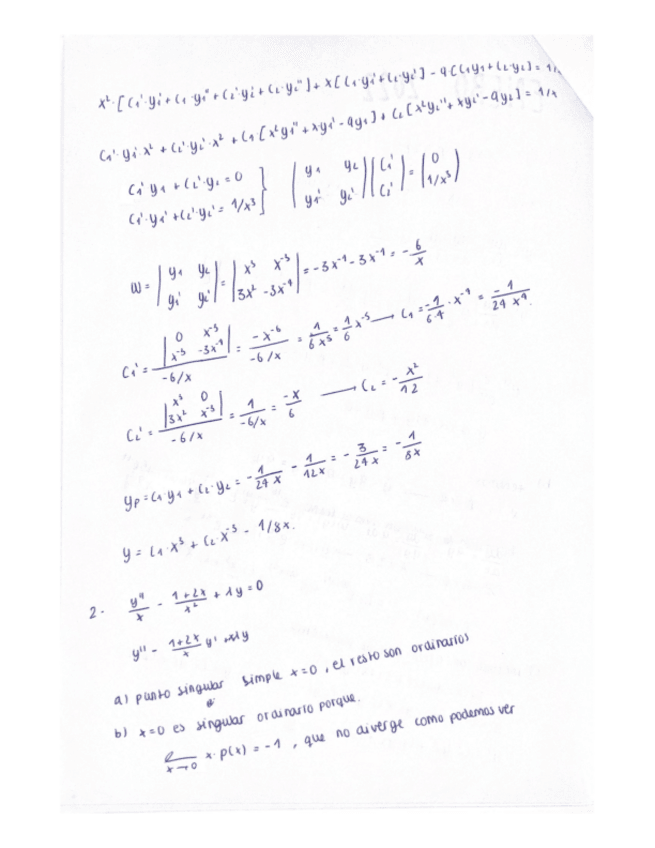 x²·[C₁'·y₁'+C₁·y₁''+C₂'·y₂'+C₂·y₂'']+x[C₁·y₁'+C₂·y₂']-9[C₁y₁+C₂y₂]=1/x
C₁'·y₁'x²+C₂'·y₂'·x²+C₁[x²y₁''+xy₁'-9y₁]+C₂[x²y₂''+xy₂'-9y₂]=1/x
C₁'y₁+C₂'·y₂=0 } |y₁ y₂| |C₁'| = |0|
C₁'·y₁'+C₂'y₂'=1/x³ |y₁' y₂'| |C₂'| |1/x³|
W= |y₁ y₂; y₁' y₂'| = |x³ x⁻³; 3x² -3x⁻⁴| = -3x⁻¹-3x⁻¹ = -6/x
C₁'= |0 x⁻³; x⁻³ -3x⁻⁴| / -6/x = -x⁻⁶ / -6/x = 1/6x⁵ = 1/6 x⁻⁵ → C₁=-1/6·4 · x⁻⁴ = -1/24x⁴
C₂'= |x³ 0; 3x² x⁻³| / -6/x = 1/-6/x = -x/6 → C₂=-x²/12
yp=C₁·y₁+C₂·y₂=-1/24x - 1/12x = -3/24x = -1/8x
y=C₁·x³+C₂x⁻³-1/8x.
2. y''/x - 1+2x/x² + λy=0
y''- 1+2x/x y' λy
a) punto singular simple x=0, el resto son ordinarios
b) x=0 es singular ordinario porque.
x→0 x·p(x)=-1, que no diverge como podemos ver